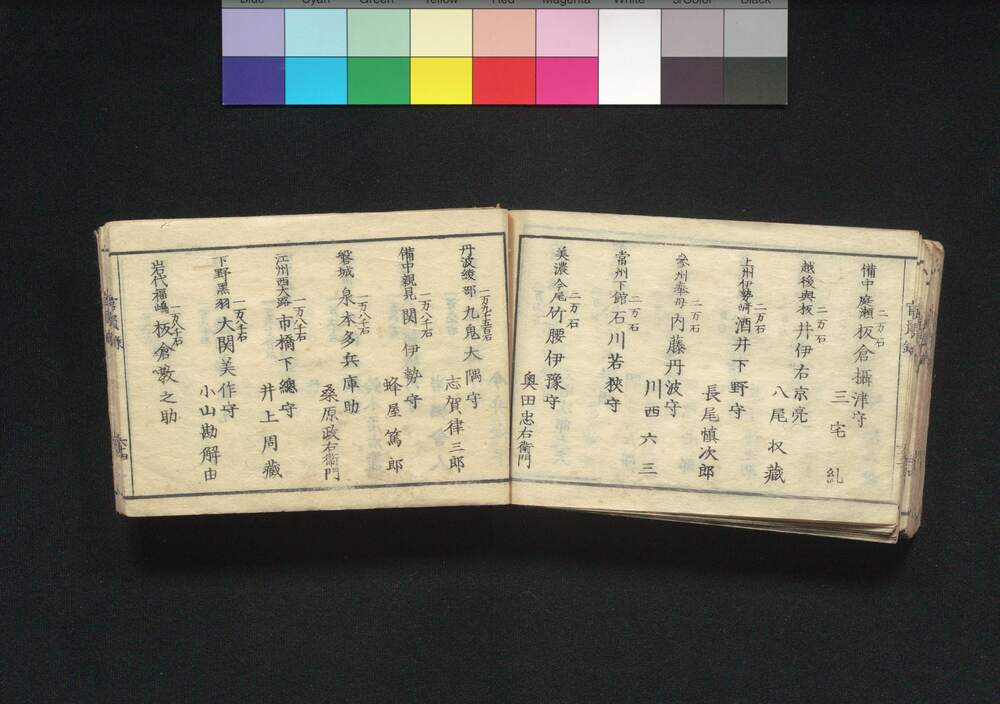 Blue Cyan Green Yellow Red Magenta White 3/Color Black
備中庭瀬 二万石 板倉攝津守
三宅糺
越後與板 二万石 井伊右京亮
八尾収藏
上州伊勢崎 二万石 酒井下野守
長尾慎次郎
参州挙母 二万石 内藤丹波守
川西六三
常州下館 二万石 石川若狭守
美濃今尾 二万石 竹腰伊豫守
奥田忠右衛門
丹波綾部 一万九千五百石 九鬼大隅守
志賀律三郎
備中親見 一万八千石 関伊勢守
蜂屋篤郎
磐城泉 一万八千石 本多兵庫助
桑原政右衛門
江州西大路 一万八千石 市橋下總守
井上周藏
下野黒羽 一万八千石 大関美作守
小山勘解由
岩代福嶋 一万八千石 板倉敎之助